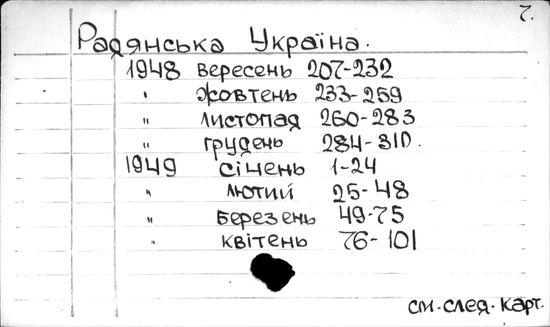 7.
Радянська Україна.
1948 вересень 207-232
" жовтень 233-259
" листопад 260-283
" грудень 284-310.
1949 січень 1-24
" лютий 25-48
" березень 49-75
" квітень 76-101
см. след. карт.